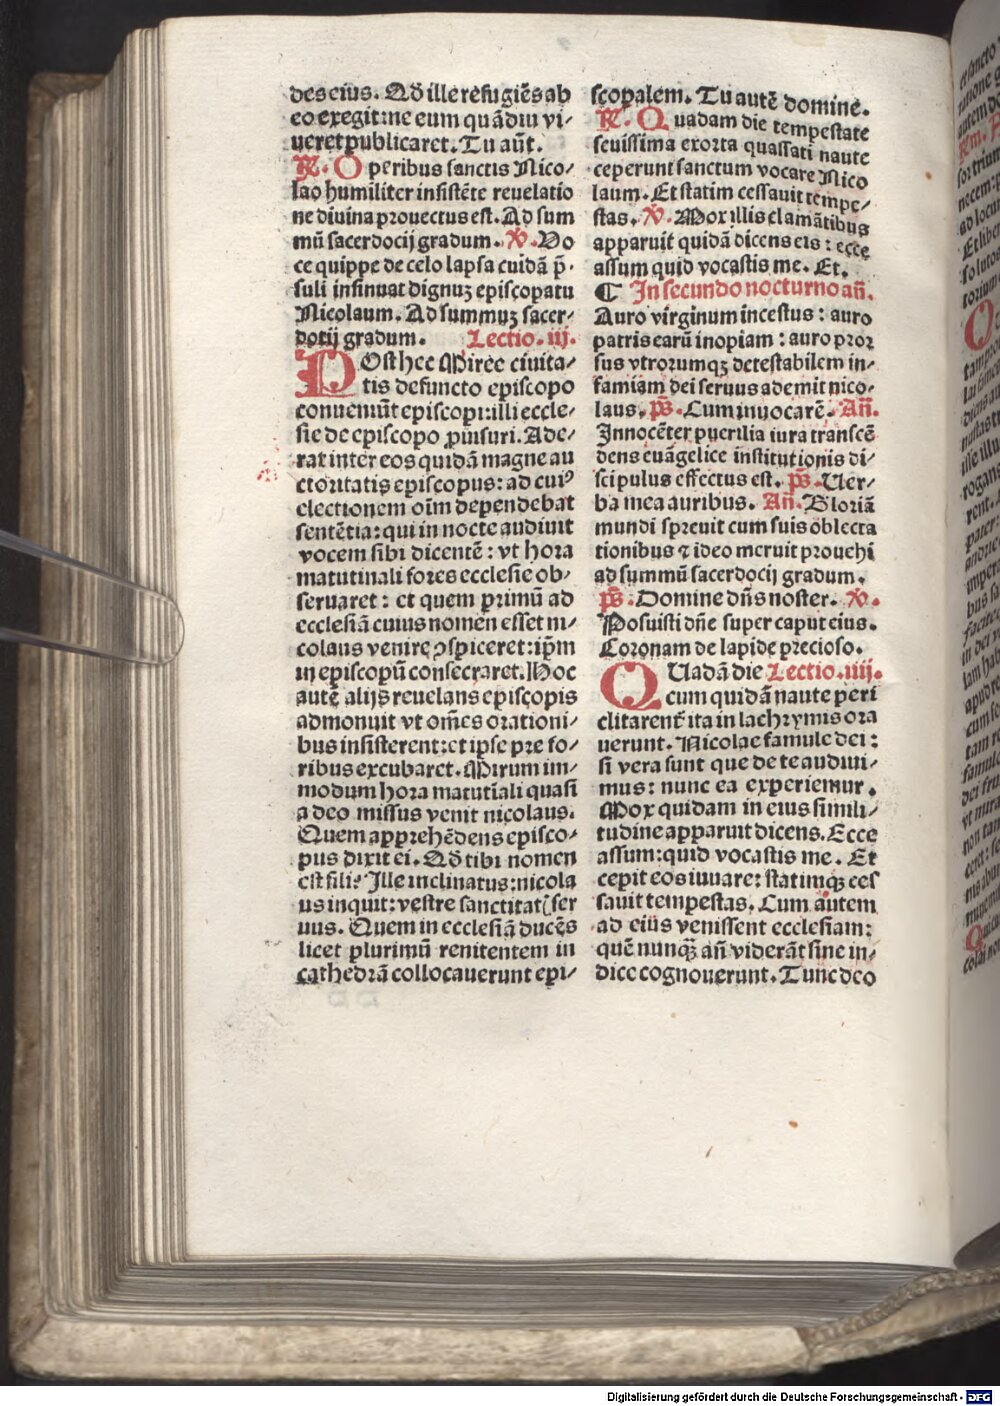 des eius. Qđ ille refugiēs ab
eo exegit: ne eum quādiu vi⸗
ueret publicaret. Tu aūt.
℟. Operibus sanctis Nico⸗
lao humiliter insistēte reuelatio
ne diuina prouectus est. Ad sum
mū sacerdocij gradum. ℣. Vo
ce quippe de celo lapsa cuidā p̄⸗
suli insinuat dignuꝫ episcopatu
Nicolaum. Ad summuꝫ sacer⸗
dotij gradum. Lectio. iij.
POst hec Miree ciuita⸗
tis defuncto episcopo
conueniūt episcopi: illi eccle⸗
sie de episcopo ꝓuisuri. Ade⸗
rat inter eos quidā magne au
ctoritatis episcopus: ad cuiꝰ
electionem oīm dependebat
sentētia: qui in nocte audiuit
vocem sibi dicentē: vt hora
matutinali fores ecclesie ob⸗
seruaret: et quem primū ad
ecclesiā cuius nomen esset ni⸗
colaus venire ꝯspiceret: ip̄m
in episcopū consecraret. Hoc
autē alijs reuelans episcopis
admonuit vt om̄es orationi⸗
bus insisterent: et ipse pre fo⸗
ribus excubaret. Mirum im⸗
modum hora matutīali quasi
a deo missus venit nicolaus.
Quem apprehēdens episco⸗
pus dixit ei. Qđ tibi nomen
est fili? Ille inclinatus: nicola
us inquit: vestre sanctitatꝭ ser
uus. Quem in ecclesiā ducēs
licet plurimū renitentem in
cathedrā collocauerunt epi⸗
scopalem. Tu autē domine.
℟. Quadam die tempestate
seuissima exorta quassati naute
ceperunt sanctum vocare Nico
laum. Et statim cessauit tempe⸗
stas. ℣. Mox illis clamātibus
apparuit quidā dicens eis: ecce
assum quid vocastis me. Et.
¶ In secundo nocturno añ.
Auro virginum incestus: auro
patris earū inopiam: auro pror
sus vtrorumqꝫ detestabilem in⸗
famiam dei seruus ademit nico⸗
laus. p̄s. Cum inuocarē. Añ.
Innocēter puerilia iura transcē
dens euāgelice institutionis di⸗
scipulus effectus est. p̄s. Uer⸗
ba mea auribus. Añ. Gloriā
mundi spreuit cum suis oblecta
tionibus ⁊ ideo meruit prouehi
ad summū sacerdocij gradum.
p̄s. Domine dn̄s noster. ℣.
Posuisti dn̄e super caput eius.
Coronam de lapide precioso.
QUadā die Lectio. iiij.
cum quidā naute peri
clitarent᷑ ita in lachrymis ora
uerunt. Nicolae famule dei:
si vera sunt que de te audiui⸗
mus: nunc ea experiemur.
Mox quidam in eius simili⸗
tudine apparuit dicens. Ecce
assum: quid vocastis me. Et
cepit eos iuuare: statimqꝫ ces
sauit tempestas. Cum autem
ad eius venissent ecclesiam:
quē nunqꝫ añ viderāt sine in⸗
dice cognouerunt. Tunc deo
Digitalisierung gefördert durch die Deutsche Forschungsgemeinschaft - DFG